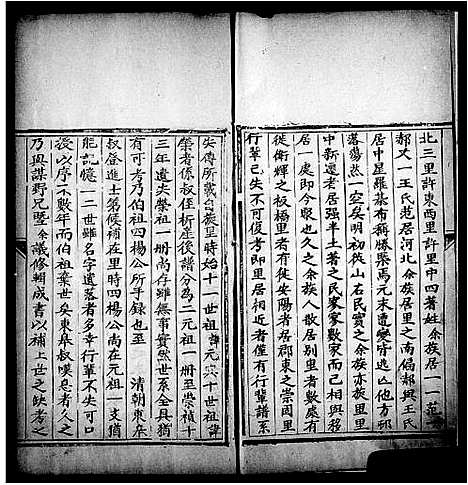 北三里許東西里許里中四著姓余族居一一范一
郝又一王氏范居河北余族居里之南偏郝與王氏
居中星羅棊布稱勝槩焉元末遭變皆逃亡他方邨
落蕩然一空矣明初徙山右民實之余族亦太里里
中新遷老居強半土著之民家家數家而已相與務
居一處即今聚也久之余族人散居別里者數處有
徙衛輝之板橋里者有徙安陽者居郡東之崇固里
行輩已失不可復考即里居相近者僅有行輩譜系
失傳所載自嚴里時始十一世祖諱元具十世祖諱
榮者係叔侄析產後譜分為二元祖一册至崇禎十
三年遺失榮祖一册尚存雖無事實然世系全具猶
有可考乃伯祖四楊公所手錄也至 清朝東臯
叔登進士第候補在里時四楊公尚在元祖一支猶
能記憶一二世雖名字遺落者多幸行輩不失可口
授以序不數年而伯祖棄世矣東臯叔嘆息者久之
乃與謀野兄暨余議修輯成書以補上世之缺考之